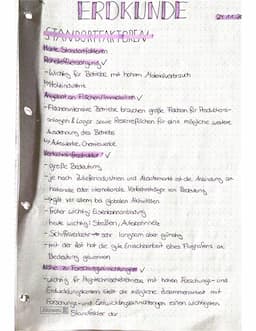 ERDKUNDE
STANDORTFAKTOREN
Harte Standortfaktoren
Rohstoffversorgung ✓
- Wichtig für Betriebe mit hohem Materialverbrauch
↳ Holzindustrie
Angebot an Flächen/Immobilien ✓
- Flächenintensive Betriebe brauchen große Flächen für Produktions-
anlagen & Lager sowie Reserveflächen für eine mögliche weitere
Ausdehnung des Betriebs
↳ Autowerke, Chemiewerke
Verkehrsinfrastruktur ✓
- große Bedeutung
- je nach Zulieferindustrien und Absatzmarkt ist die Anbindung an
nationale oder internationale Verkehrswege von Bedeutung
→ gilt vor allem bei globalen Aktivitäten
- früher wichtig: Eisenbahnanbindung
- heute wichtig: Straßen, Autobahnnetz
- Schiffsverkehr → sehr langsam aber günstig
- mit der Zeit hat die gute Erreichbarkeit eines Flughafens an
Bedeutung gewonnen
Nähe zu Forschungseinrichtungen ✓
- wichtig für Hightechbetriebe mit hohen Forschungs- und
Entwicklungskosten, stellt die mögliche Zusammenarbeit mit
Forschungs- und Entwicklungseinrichtungen einen wichtigen
Standfaktor dar